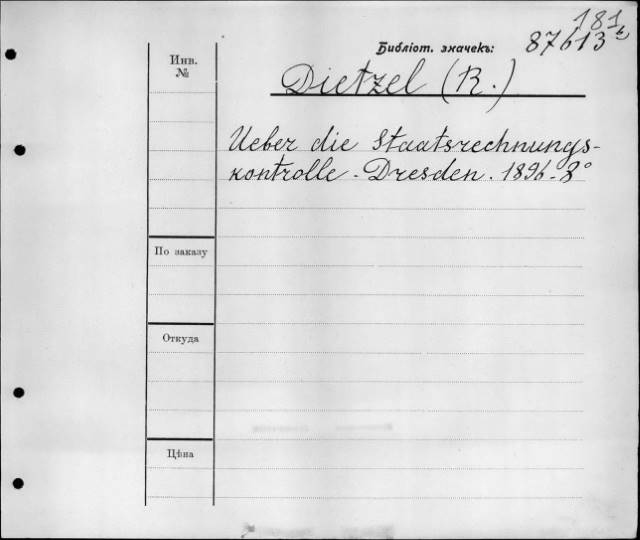 181
Библіот. значекъ: 87613
Инв.
№
Dietzel (R.)
Ueber die Staatsrechnungs-
kontrolle. Dresden. 1896. 8°
По заказу
Откуда
Цѣна